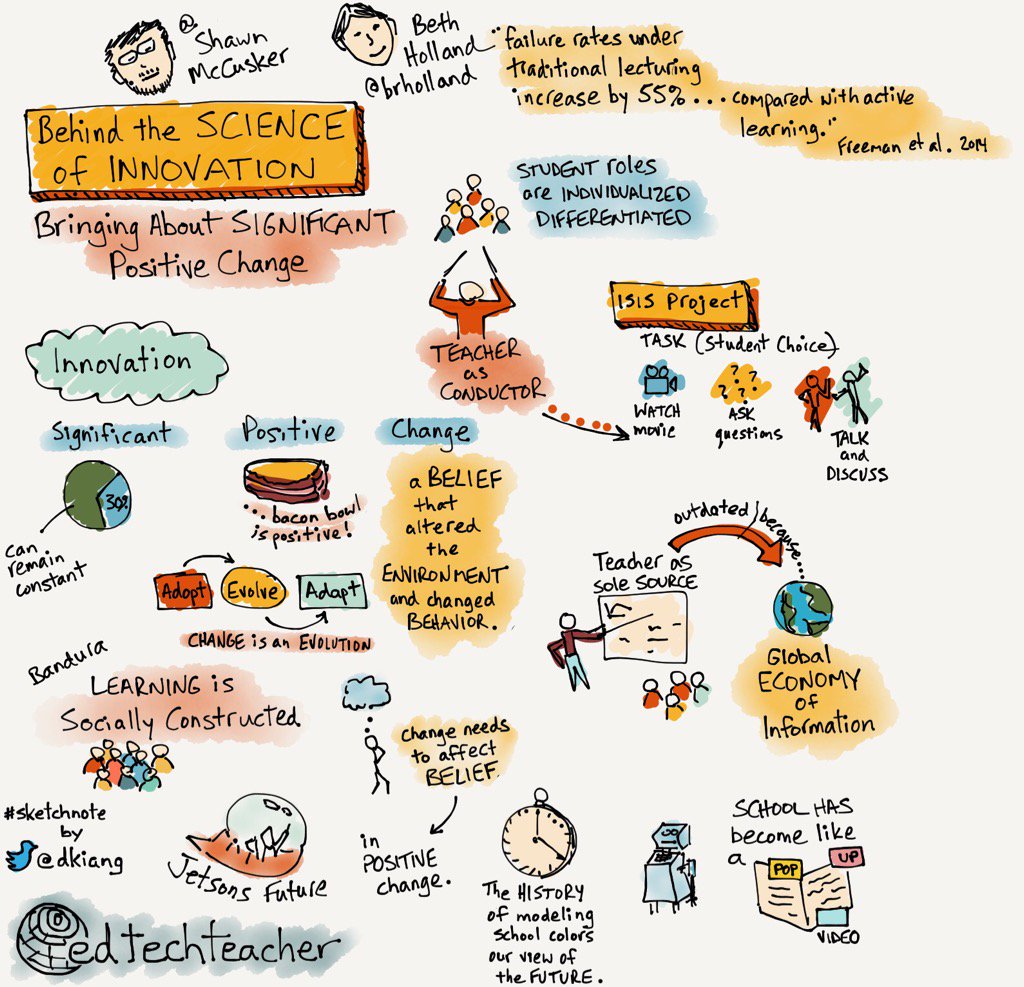 @
Shawn
McCusker
Beth
Holland
@brholland
"failure rates under
traditional lecturing
increase by 55% ... compared with active
learning."
Freeman et al. 2014
Behind the SCIENCE
of INNOVATION
Bringing About SIGNIFICANT
Positive Change
STUDENT roles
are INDIVIDUALIZED
DIFFERENTIATED
TEACHER
as
CONDUCTOR
ISIS Project
TASK (Student Choice)
WATCH
movie
? ? ? ? ? ?
ASK
questions
TALK
and
DISCUSS
Innovation
Significant
30%
can
remain
constant
Positive
... bacon bowl
is positive!
Change
a BELIEF
that
altered
the
ENVIRONMENT
and changed
BEHAVIOR.
Adopt
Evolve
Adapt
CHANGE is an EVOLUTION
outdated because...
Teacher as
sole SOURCE
Global
ECONOMY
of
Information
Bandura
LEARNING is
Socially Constructed
change needs
to affect
BELIEF
in
POSITIVE
change.
#sketchnote
by
@dkiang
Jetsons Future
The HISTORY
of modeling
school colors
our view of
the FUTURE.
SCHOOL HAS
become like
a
POP
UP
VIDEO
edtechteacher